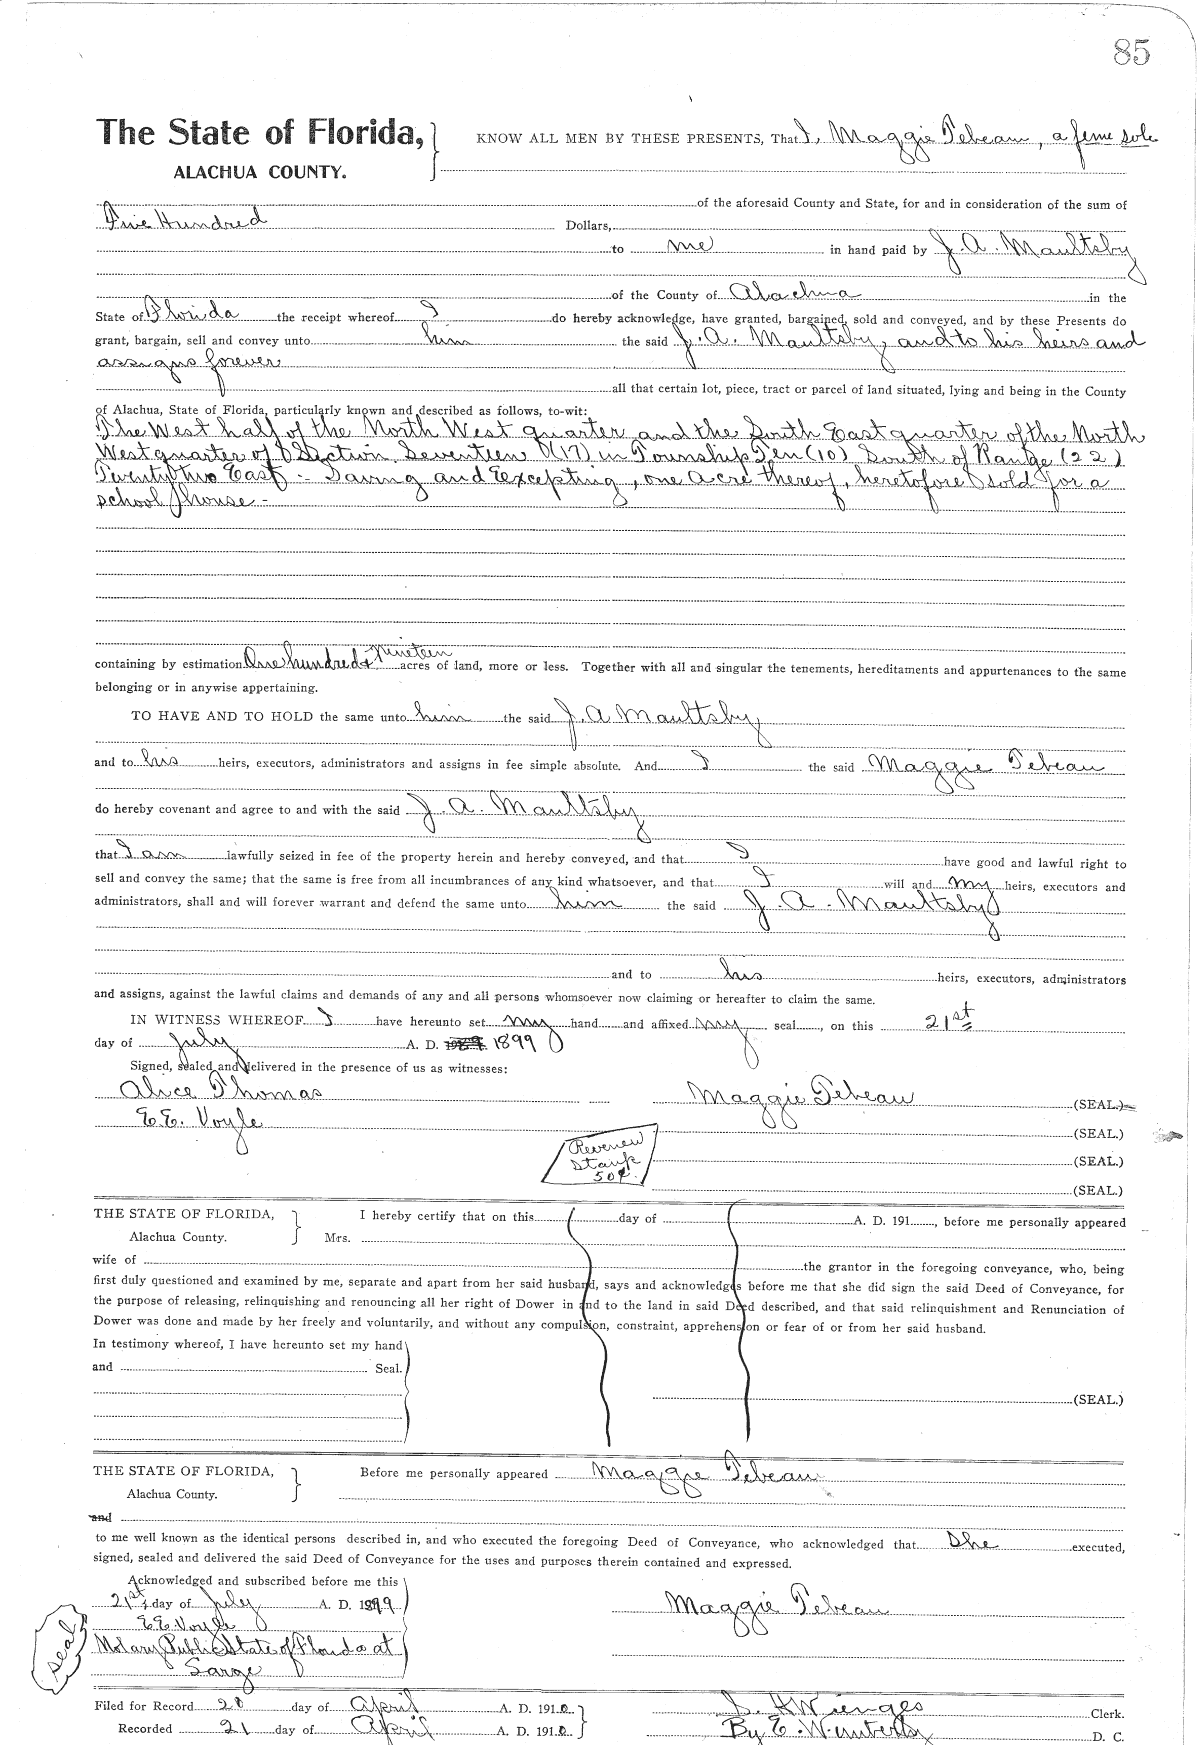 85
The State of Florida,
ALACHUA COUNTY.
KNOW ALL MEN BY THESE PRESENTS, That I, Maggie Tebeau, a feme sole
of the aforesaid County and State, for and in consideration of the sum of
Five Hundred Dollars,
to me in hand paid by J. A. Maultsby
of the County of Alachua in the
State of Florida the receipt whereof I do hereby acknowledge, have granted, bargained, sold and conveyed, and by these Presents do
grant, bargain, sell and convey unto him the said J. A. Maultsby, and to his heirs and
assigns forever
all that certain lot, piece, tract or parcel of land situated, lying and being in the County
of Alachua, State of Florida, particularly known and described as follows, to-wit:
The West half of the North West quarter and the South East quarter of the North
West quarter of Section Seventeen (17) in Township Ten (10) South of Range (22)
Twenty two East - Saving and Excepting, one acre thereof, heretofore sold for a
school house -
containing by estimation One hundred & Nineteen acres of land, more or less. Together with all and singular the tenements, hereditaments and appurtenances to the same
belonging or in anywise appertaining.
TO HAVE AND TO HOLD the same unto him the said J. A Maultsby
and to his heirs, executors, administrators and assigns in fee simple absolute. And I the said Maggie Tebeau
do hereby covenant and agree to and with the said J. A. Maultsby
that I am lawfully seized in fee of the property herein and hereby conveyed, and that I have good and lawful right to
sell and convey the same; that the same is free from all incumbrances of any kind whatsoever, and that I will and my heirs, executors and
administrators, shall and will forever warrant and defend the same unto him the said J. A. Maultsby
and to his heirs, executors, administrators
and assigns, against the lawful claims and demands of any and all persons whomsoever now claiming or hereafter to claim the same.
IN WITNESS WHEREOF I have hereunto set my hand and affixed my seal, on this 21st
day of July A. D. 1899
Signed, sealed and delivered in the presence of us as witnesses:
Alice Thomas Maggie Tebeau (SEAL.)
E.E. Voyle (SEAL.)
Revenew
Stamp
50¢
(SEAL.)
(SEAL.)
THE STATE OF FLORIDA,
Alachua County.
I hereby certify that on this day of A. D. 191, before me personally appeared
Mrs.
wife of the grantor in the foregoing conveyance, who, being
first duly questioned and examined by me, separate and apart from her said husband, says and acknowledges before me that she did sign the said Deed of Conveyance, for
the purpose of releasing, relinquishing and renouncing all her right of Dower in and to the land in said Deed described, and that said relinquishment and Renunciation of
Dower was done and made by her freely and voluntarily, and without any compulsion, constraint, apprehension or fear of or from her said husband.
In testimony whereof, I have hereunto set my hand
and Seal.
(SEAL.)
THE STATE OF FLORIDA,
Alachua County.
Before me personally appeared Maggie Tebeau
and
to me well known as the identical persons described in, and who executed the foregoing Deed of Conveyance, who acknowledged that She executed,
signed, sealed and delivered the said Deed of Conveyance for the uses and purposes therein contained and expressed.
Acknowledged and subscribed before me this
21st day of July A. D. 1899 Maggie Tebeau
E E Voyle
Notary Public State of Florida at
Large
seal
Filed for Record 20 day of April A. D. 1910 S. H Wienges Clerk.
Recorded 21 day of April A. D. 1910 By E. Wimberly D. C.